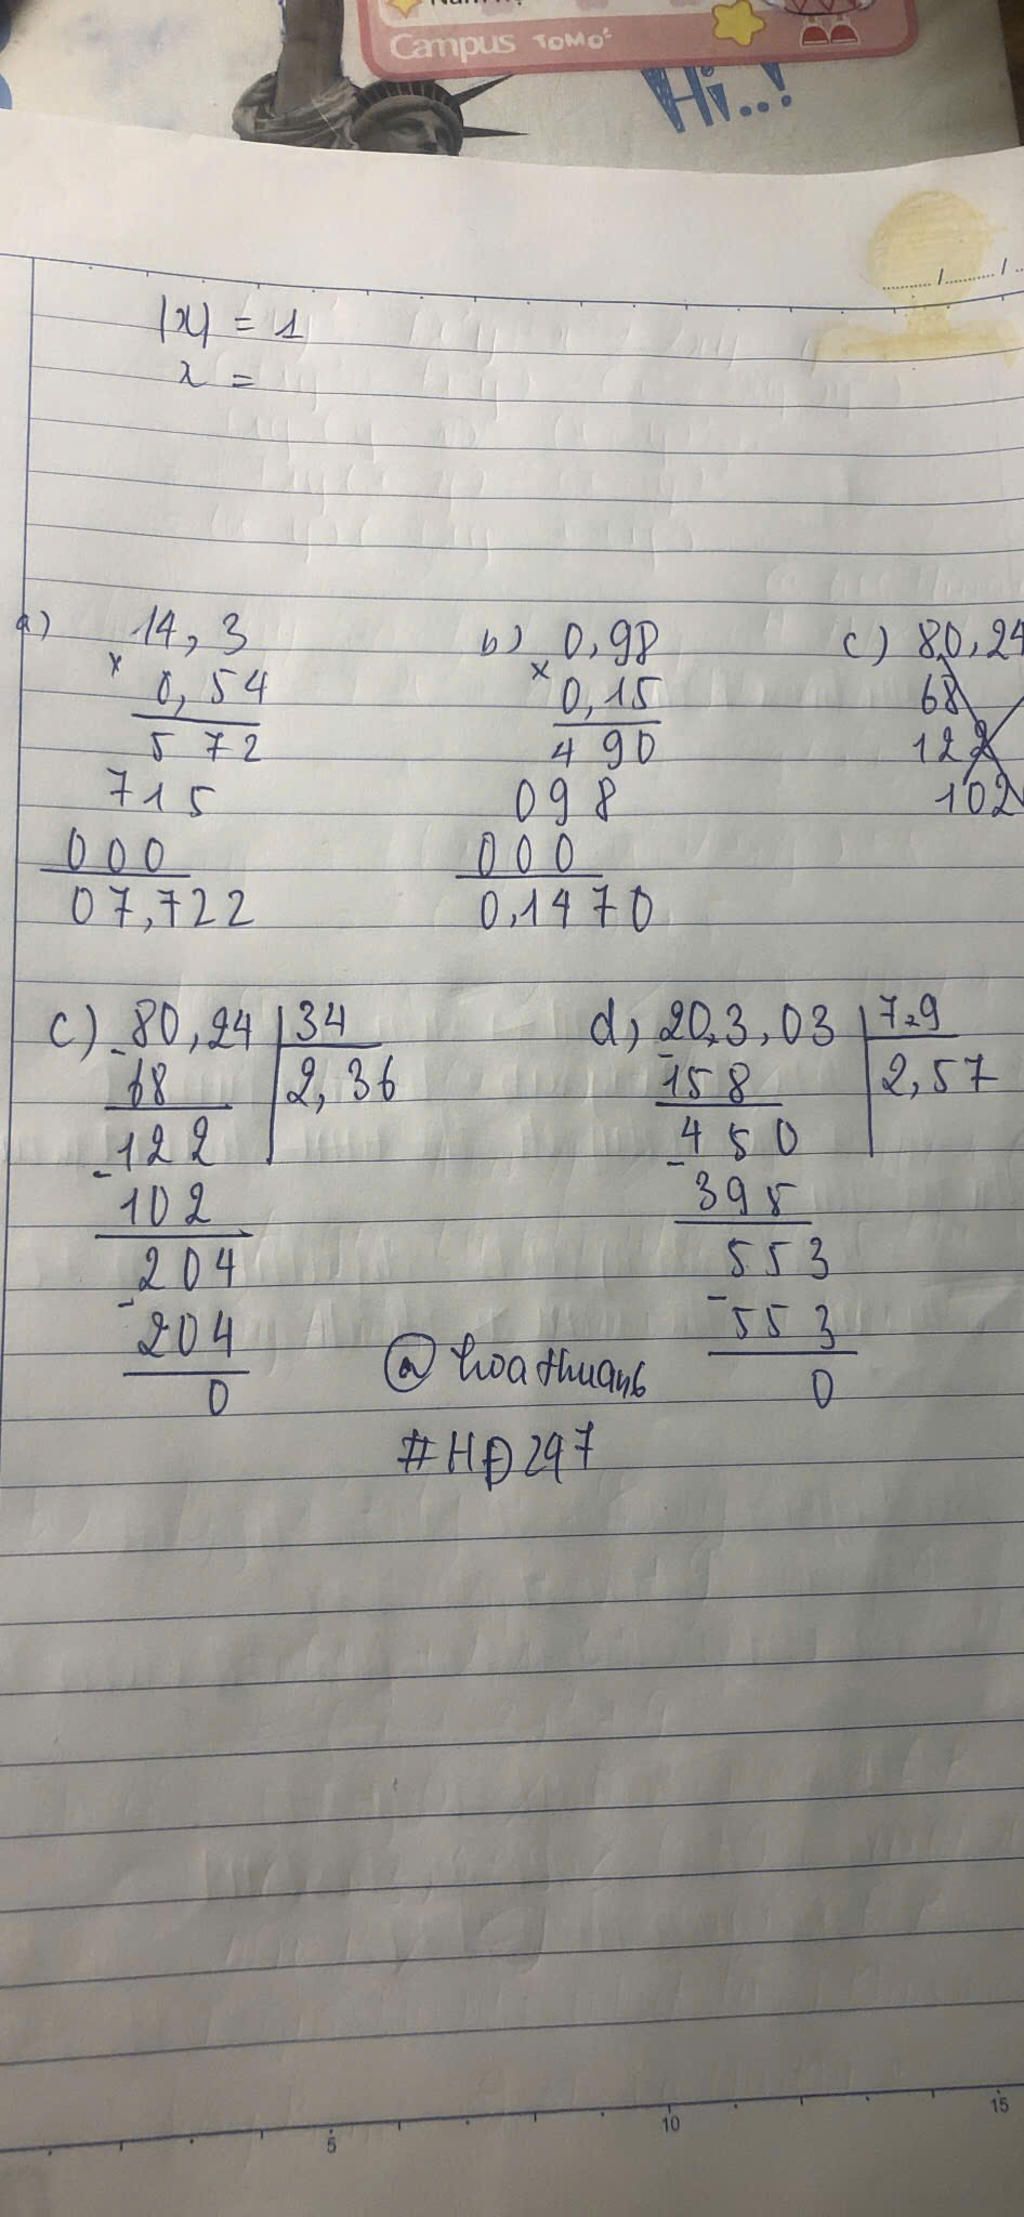 Campus TOMO'S
Hi..!
|x| = 1
x =
a) 14,3
x
0,54
572
715
000
07,722
b) 0,98
x
0,15
490
098
000
0,1470
c) 80,24
68
122
102
c) 80,24 34
- 68 2,36
122
- 102
204
- 204
0
d) 20,3,03 7,9
- 158 2,57
450
- 395
553
- 553
0
@hoathuanb
#HĐ297
5 10 15